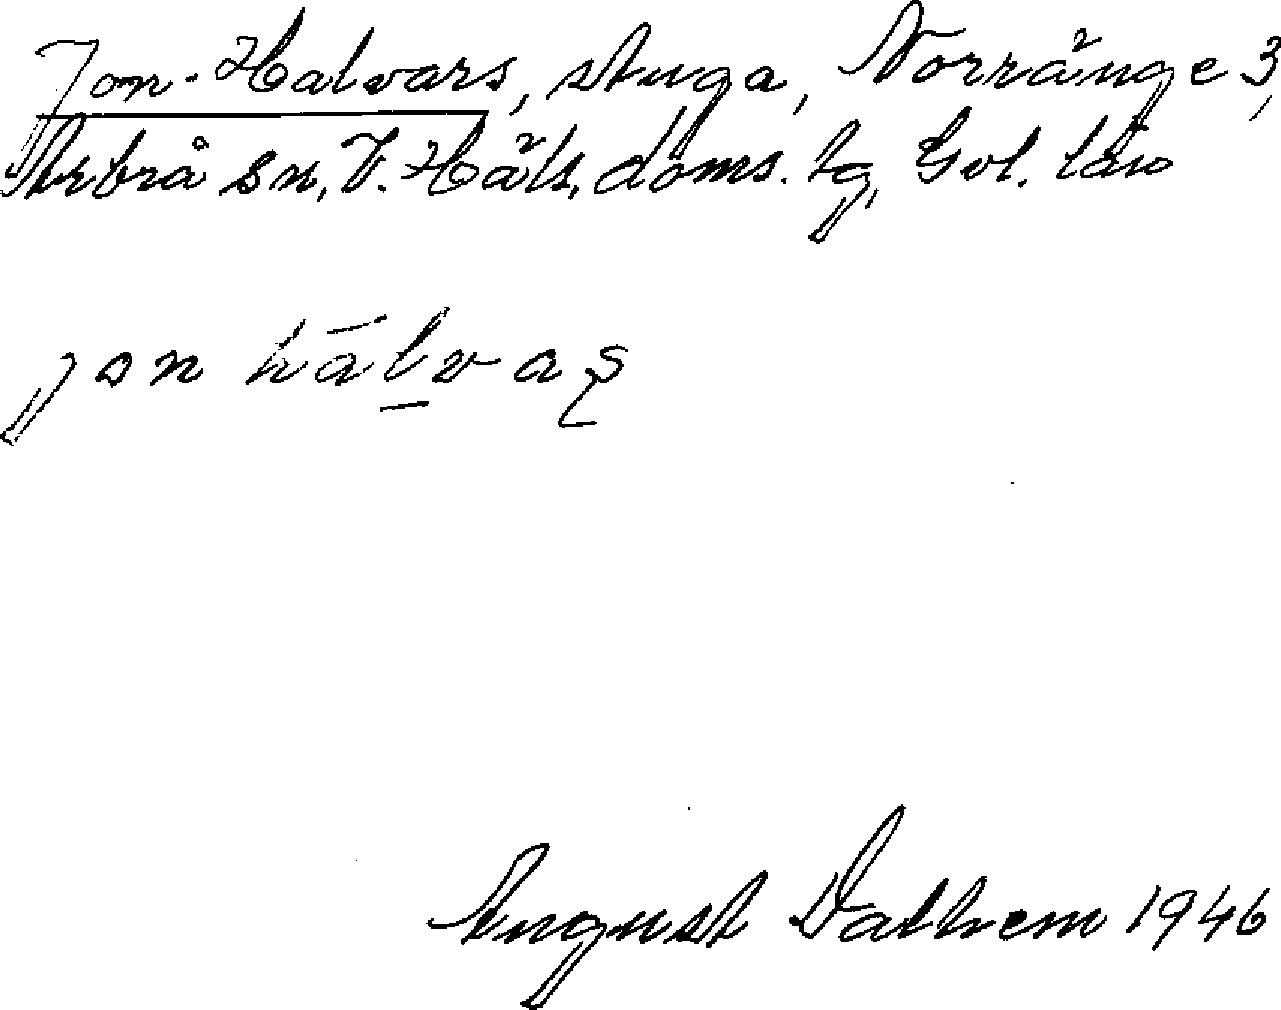 Jon-Halvars, stuga, Norränge 3,
Arbrå sn, V. Häls. doms. tg, Gvl. län
jon hālvaş
August Dalhem 1946